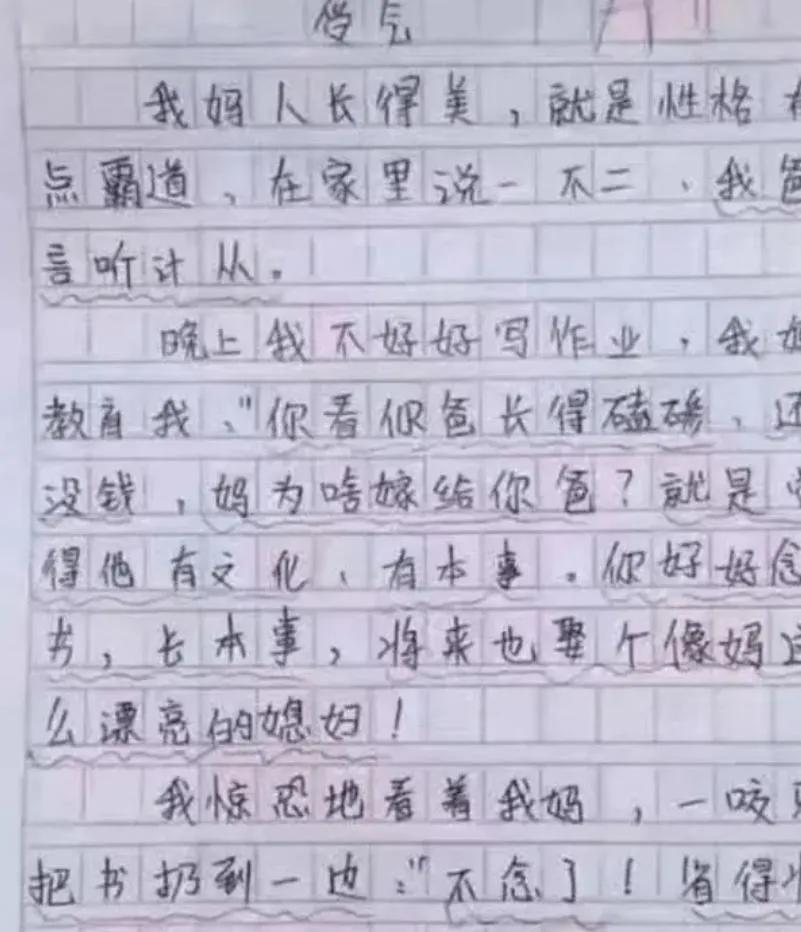 受气
我妈人长得美，就是性格
点霸道、在家里说一不二、我爸
言听计从。
晚上我不好好写作业，我妈
教育我、"你看你爸长得磕碜、还
没钱，妈为啥嫁给你爸？就是
得他有文化、有本事。你好好念
书，长本事，将来也娶个像妈这
么漂亮的媳妇！
我惊恐地看着我妈，一咬
把书扔到一边："不念了！省得